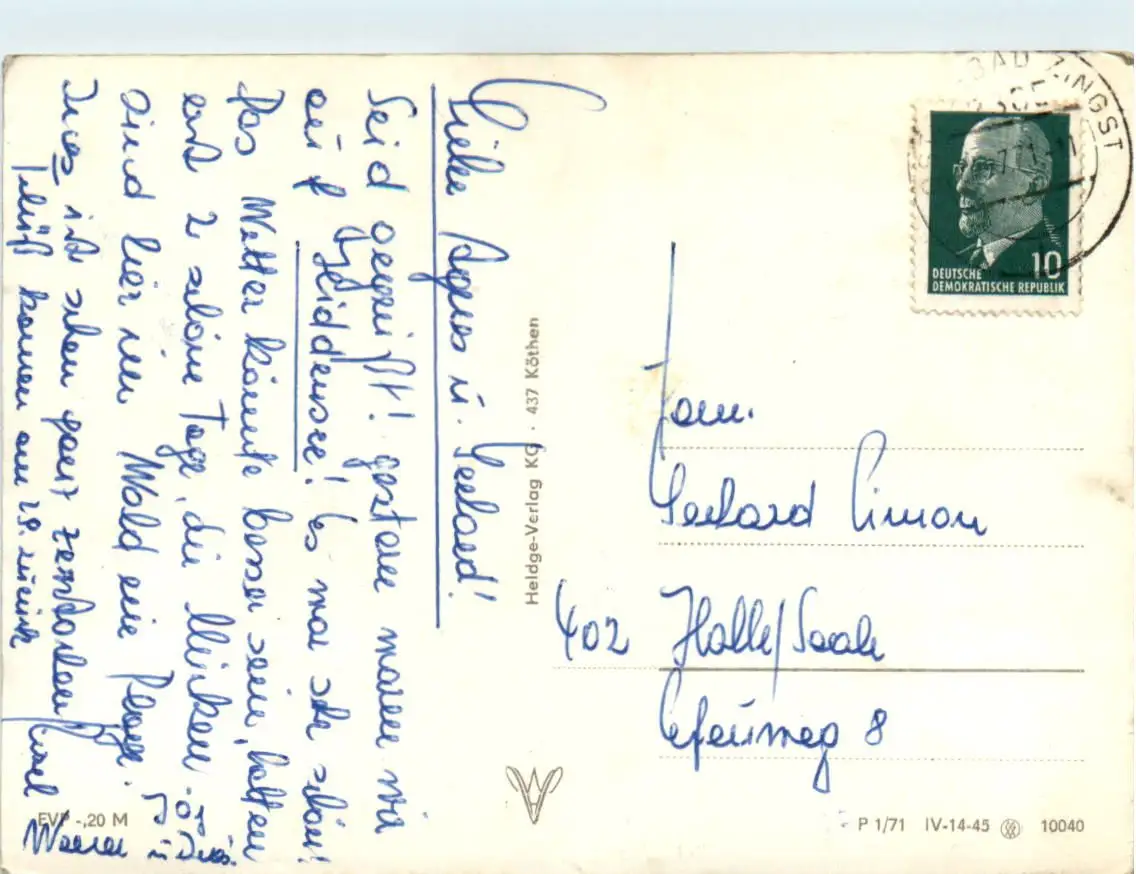 Liebe Agnes u. Gerhard!
Seid gegrüßt! Gestern waren wir
auf Hiddensee! Es war sehr schön!
Das Wetter könnte besser sein, hatten
erst 2 schöne Tage, die Mücken
sind hier im Wald eine Plage.
Ines ist schon ganz zerstochen
Müß kommen am 29. zurück
Werner u. Ines.
Fam.
Gerhard Simon
402 Halle/Saale
Efeuweg 8
Heldge-Verlag KG · 437 Köthen
EVP -,20 M
P 1/71 IV-14-45 10040
BAD ZINGST
DEUTSCHE
DEMOKRATISCHE REPUBLIK
10